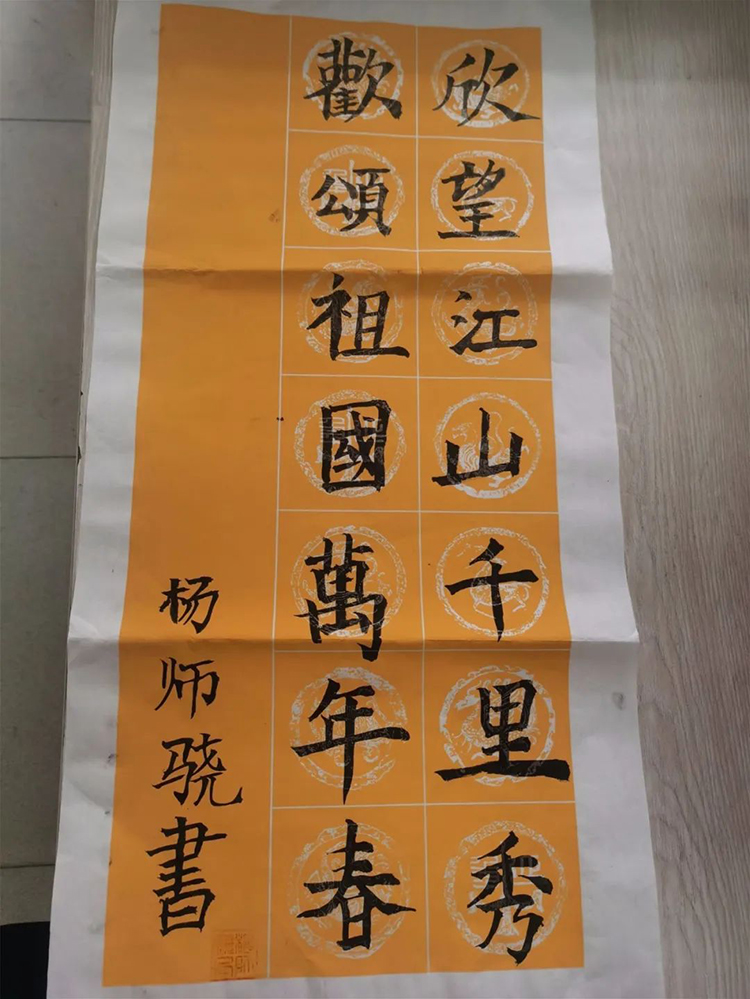 欣望江山千里秀
歡頌祖國萬年春
杨师骁書